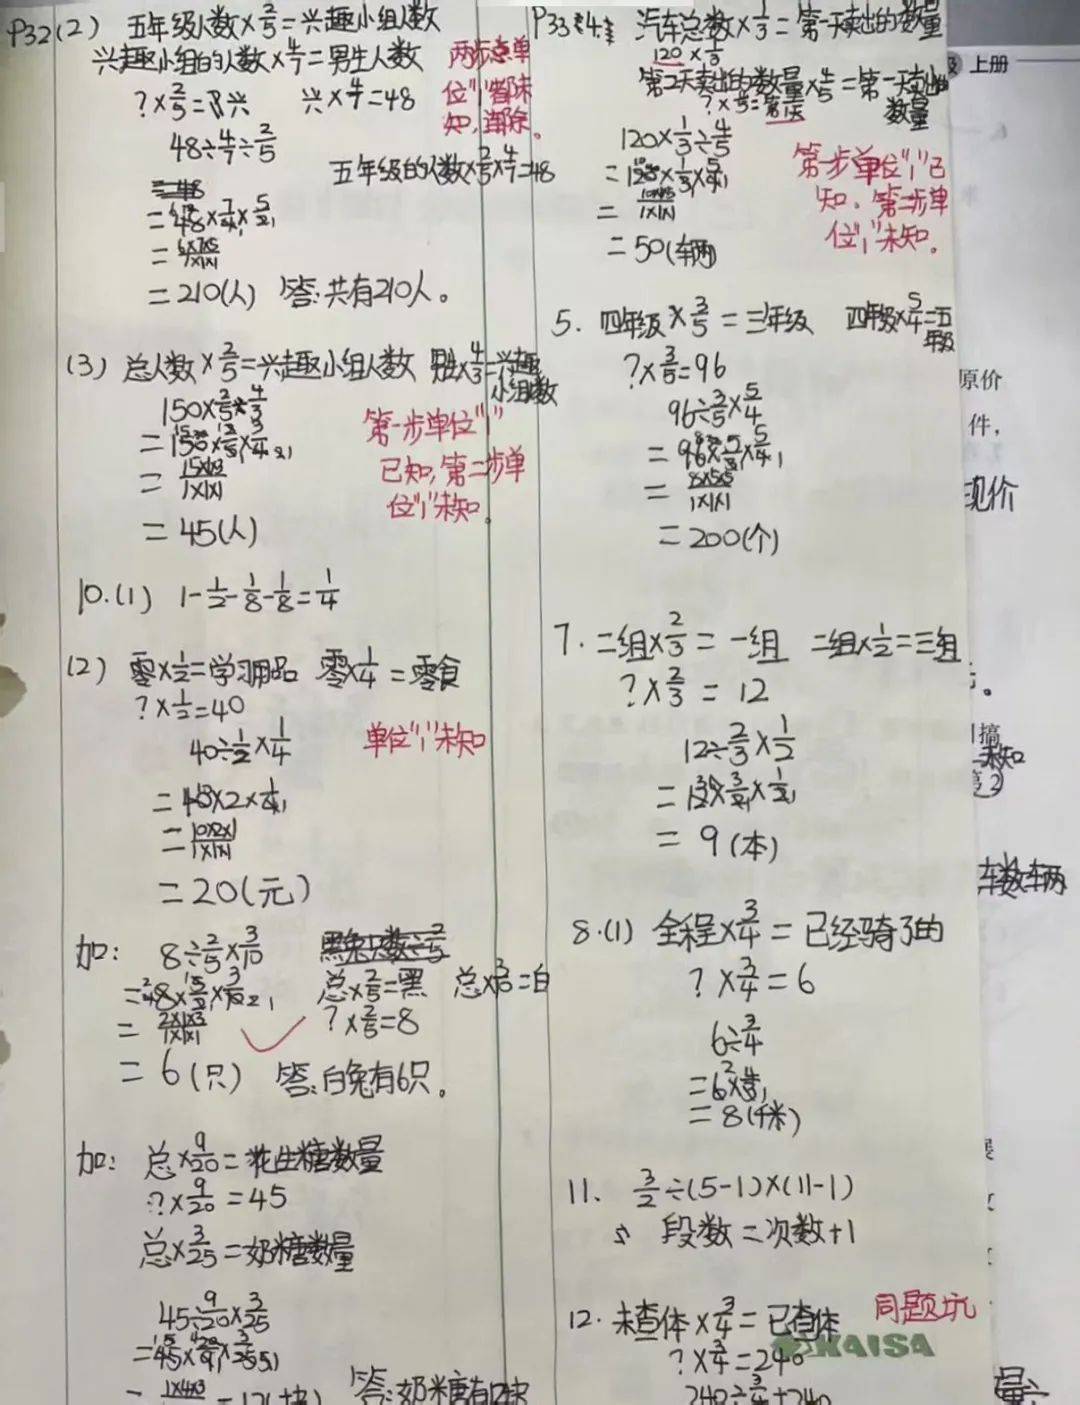 P32(2) 五年级人数×2/5=兴趣小组人数
兴趣小组的人数×4/7=男生人数
?×2/5=兴 兴×4/7=48
48÷4/7÷2/5
五年级的人数×2/5×4/7=48
两步单
位"1"都未
知,连除。
=48×7/4×5/2
=6×7×5/1×1×1
=210(人) 答:共有210人。
(3) 总人数×2/5=兴趣小组人数 男生×4/3=兴趣
小组人数
150×2/5÷4/3
=150×2/5×3/4
=15×1×3/1×1×1
=45(人)
第一步单位"1"
已知,第二步单
位"1"未知。
10.(1) 1-1/2-1/8-1/8=1/4
(2) 零×1/2=学习用品 零×1/4=零食
?×1/2=40
40÷1/2×1/4
单位"1"未知
=40×2×1/4
=10×2×1/1×1×1
=20(元)
加: 8÷2/5×3/10
总×2/5=黑 总×3/10=白
?×2/5=8
=8×5/2×3/10
=2×1×3/1×1×1
=6(只) 答:白兔有6只。
加: 总×9/20=花生糖数量
?×9/20=45
总×3/25=奶糖数量
45÷9/20×3/25
=45×20/9×3/25
=1×4×3
答:奶糖有12块
P33 4. 汽车总数×1/3=第一天卖出的数量
120×1/3
第二天卖出的数量×4/5=第一天卖出
数量
?×4/5=第1天
120×1/3÷4/5
=120×1/3×5/4
=10×1×5/1×1×1
=50(辆)
第一步单位"1"已
知,第二步单
位"1"未知。
5. 四年级×3/5=三年级 四年级×5/4=五
年级
?×3/5=96
96÷3/5×5/4
=96×5/3×5/4
=8×5×5/1×1×1
=200(个)
7. 二组×2/3=一组 二组×1/2=三组
?×2/3=12
12÷2/3×1/2
=12×3/2×1/2
=9(本)
8.(1) 全程×3/4=已经骑了的
?×3/4=6
6÷3/4
=6×4/3
=8(千米)
11. 3/2÷(5-1)×(11-1)
段数=次数+1
12. 未查体×3/4=已查体
同题坑
?×3/4=240
240÷3/4+240
KAISA
上册
原价
件,
现价
搞
未知
车数车两